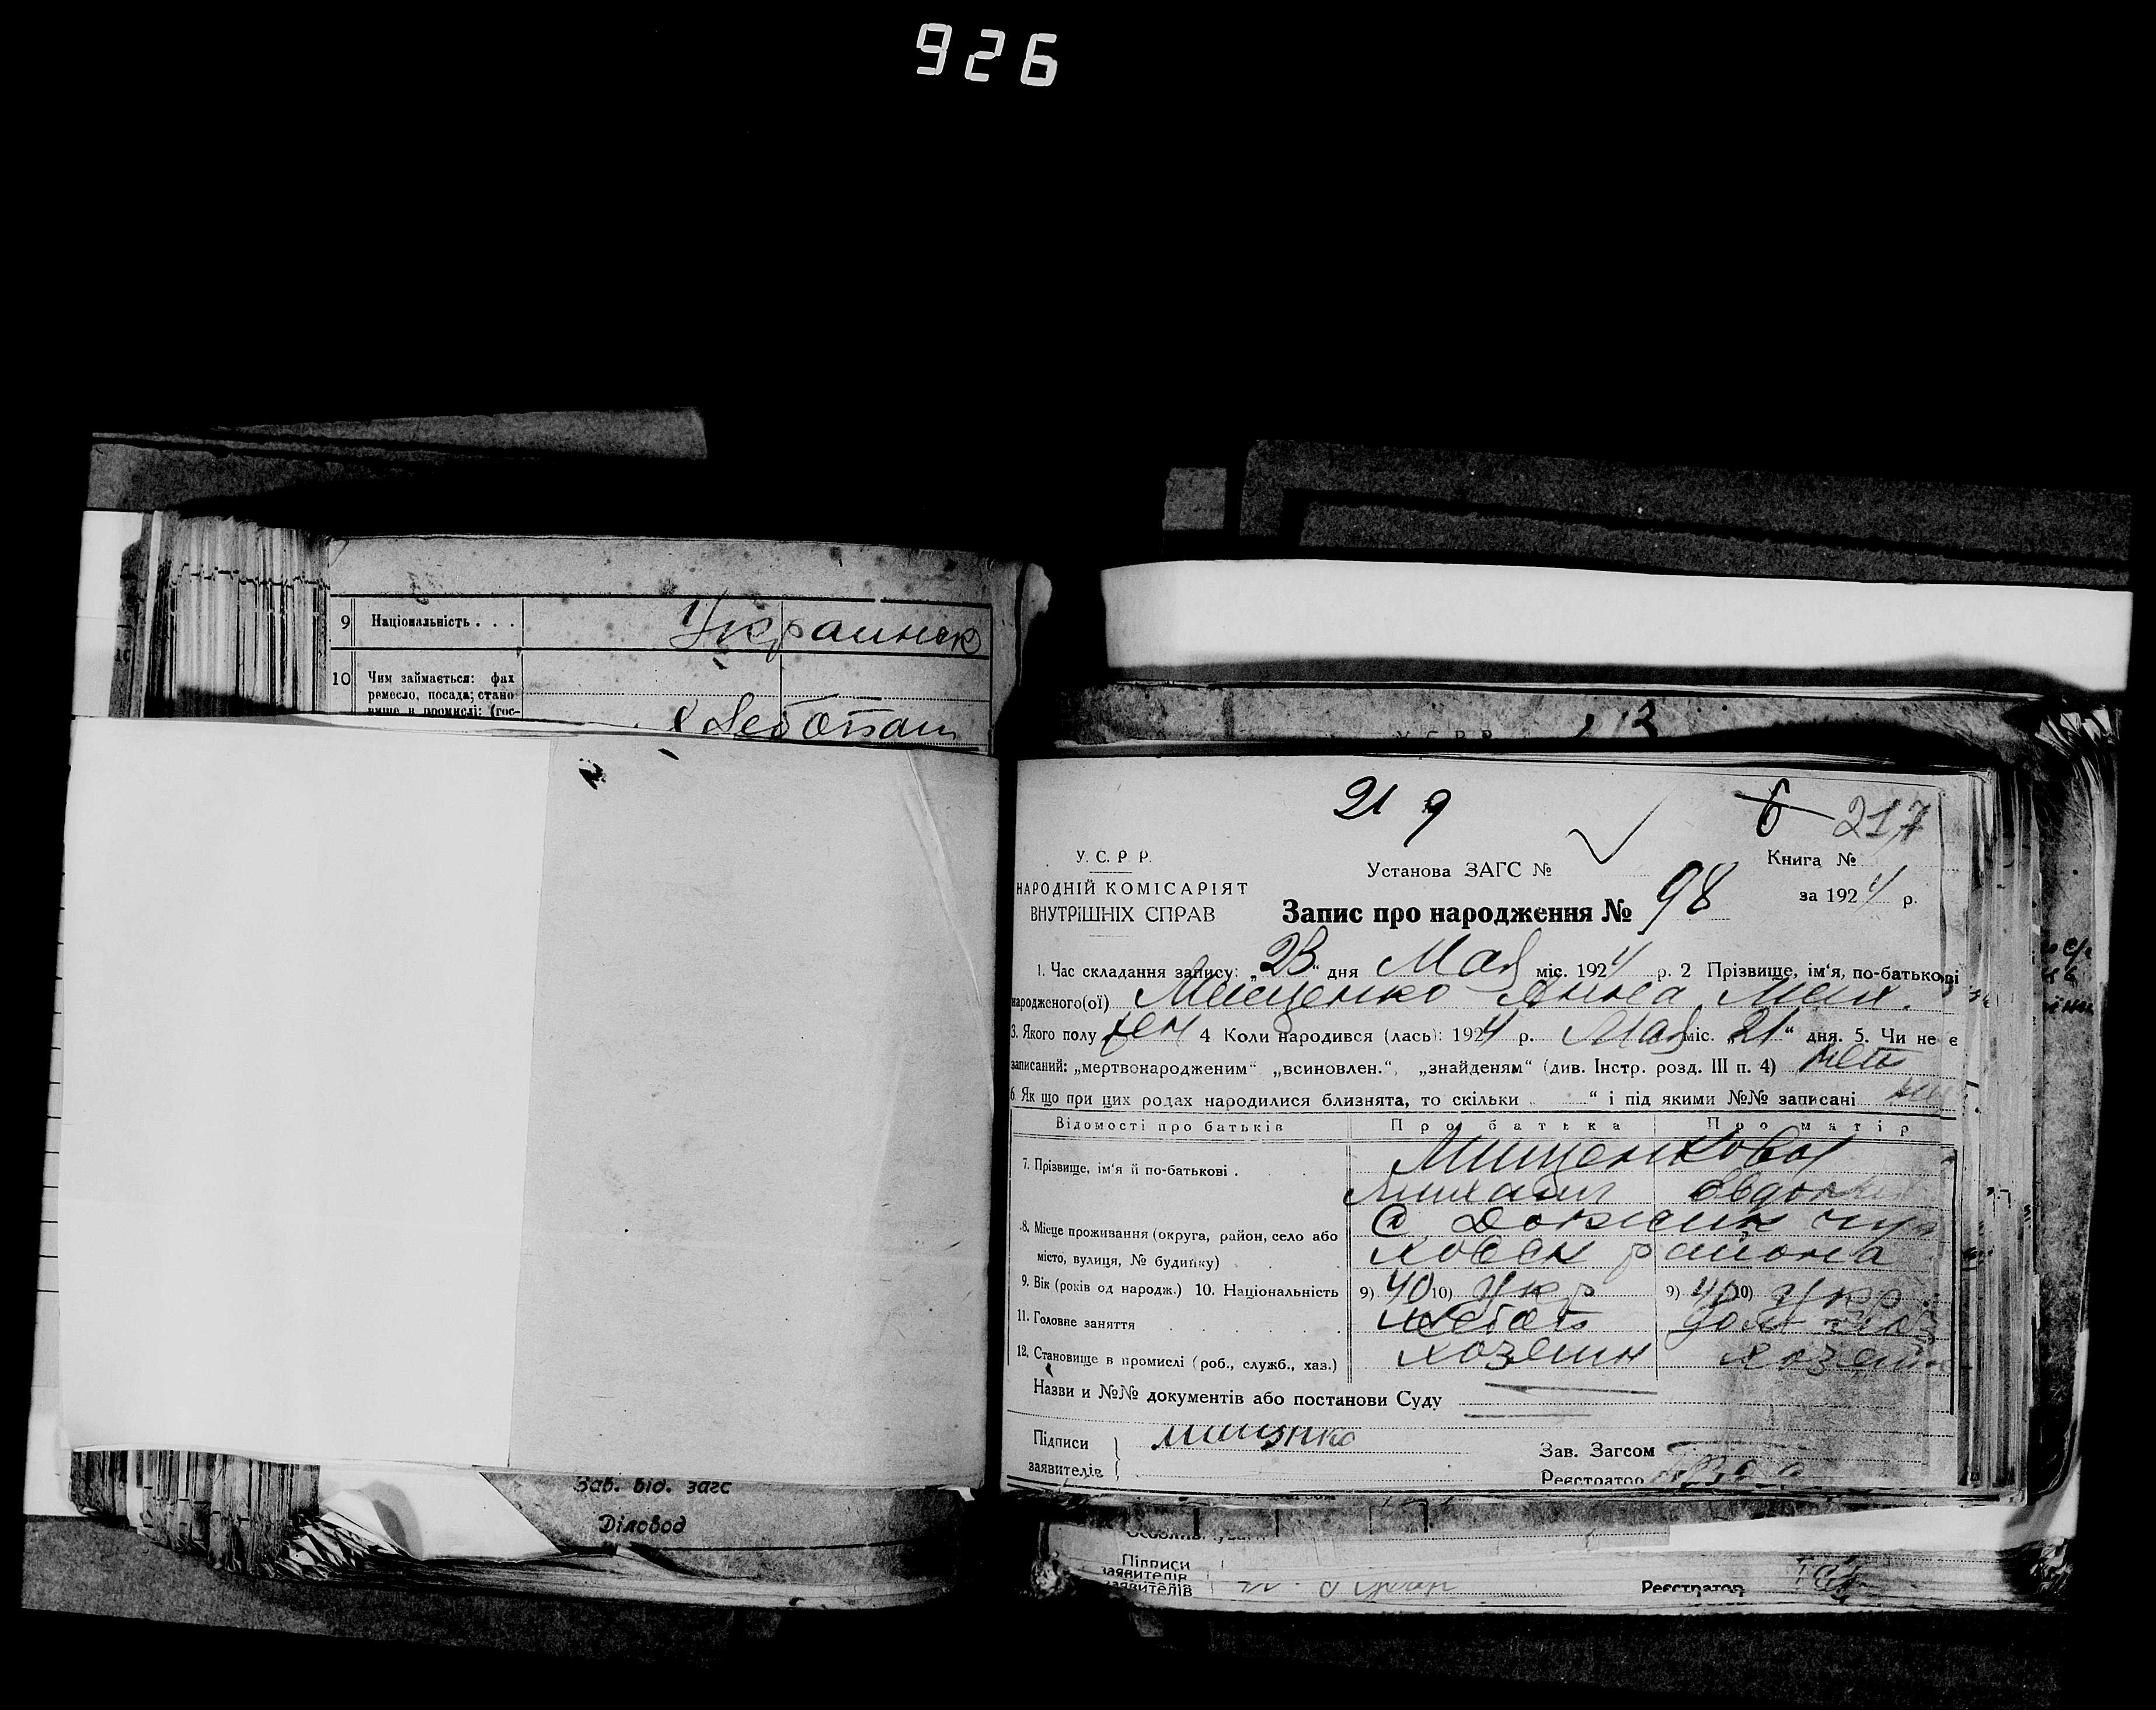 926
9 Національність . . . Украинск
10 Чим займається: фах
ремесло, посада; стано
вище в промислі: (гос-
Хлебопаш
Зав. від. загс
Діловод
У С Р Р
219
6 217
У. С. Р. Р.
НАРОДНІЙ КОМІСАРІЯТ
ВНУТРІШНІХ СПРАВ
Установа ЗАГС №
Книга №
за 1924 р.
Запис про народження № 98
1. Час складання запису: „23“ дня Мая міс. 1924 р. 2 Прізвище, ім'я, по-батькові
народженого(ої) Мищенко Анна Мих.
3. Якого полу жен 4 Коли народився (лась): 1924 р. Мая міс. 21“ дня. 5. Чи не є
записаний: „мертвонародженим“ „всиновлен.“, „знайденям“ (див. Інстр. розд. III п. 4) нет
6. Як що при цих родах народилися близнята, то скільки “ і під якими №№ записані
Відомості про батьків Про батька Про матір
7. Прізвище, ім'я й по-батькові . Мищенковы
Михаил Евдокия
8. Місце проживання (округа, район, село або
місто, вулиця, № будинку)
ховск района
9. Вік (років од народж.) 10. Національність 9) 40 10) Укр 9) 40 10) Укр
11. Головне заняття Хлебоп дом хоз
12. Становище в промислі (роб., служб., хаз.) хозяин хозяин
Назви и №№ документів або постанови Суду
Підписи
заявителів
Мищенко
Зав. Загсом
Реєстратор
Підписи
заявителів
заявителів
Реєстратор